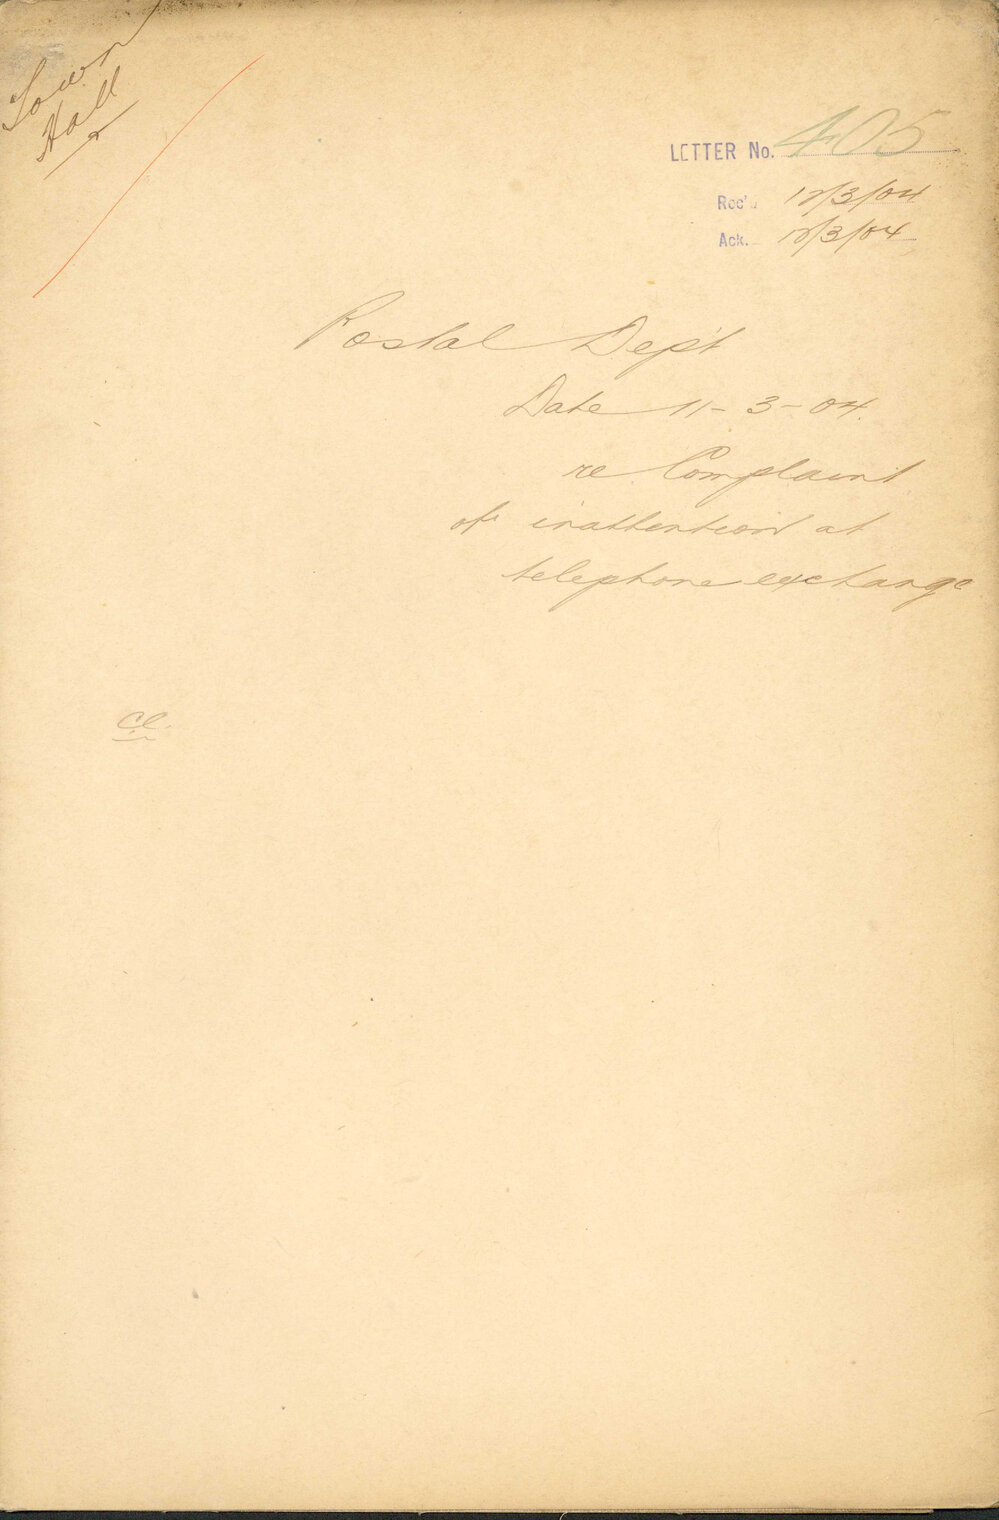 Town
Hall
LETTER No. 405
Rec'd 12/3/04
Ack. 12/3/04
Postal Dep't
Date 11-3-04.
re Complaint
of inattention at
telephone exchange